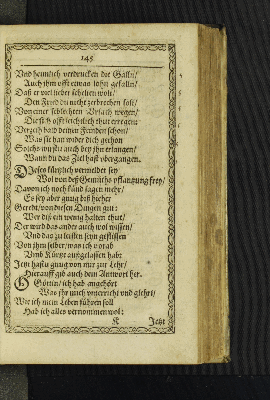 145
Vnd heimlich verdrucken die Gallñ/
Auch ihm offt etwan lohn gefalln/
Daß er viel lieber schelten wolt/
Den Fried du nicht zerbrechen solt/
Von einer schlechten Vrsach wegen/
Diß offt leichtlich thut erregen:
Vergeih bald deinen Feinden schon/
Was sie han wider dich gethon
Solchs wirstu auch bey ihn erlangen/
Wann du das Ziel hast vbergangen.
Dieses kürtzlich vermeldet sey
Wol von deß Gemüths pflantzung frey/
Davon ich noch künd sagen mehr/
Es sey aber gnug biß hieher
Geredt/ von diesen Dingen gut:
Wer diß ein wenig halten thut/
Der wird das ander auch wol wissen/
Vnd das zu leisten seyn geflissen
Von ihm selber/ was ich vorab
Vmb Kürtze außgelassen hab:
Jetzt hastu gnug von mir zur Lehr/
Hierauff gib auch dein Antwort her.
O Göttin/ ich hab angehört
Was ihr mich vnterricht vnd glehrt/
Wie ich mein Leben führen soll
Hab ich alles vernommen wol:
K Jetzt